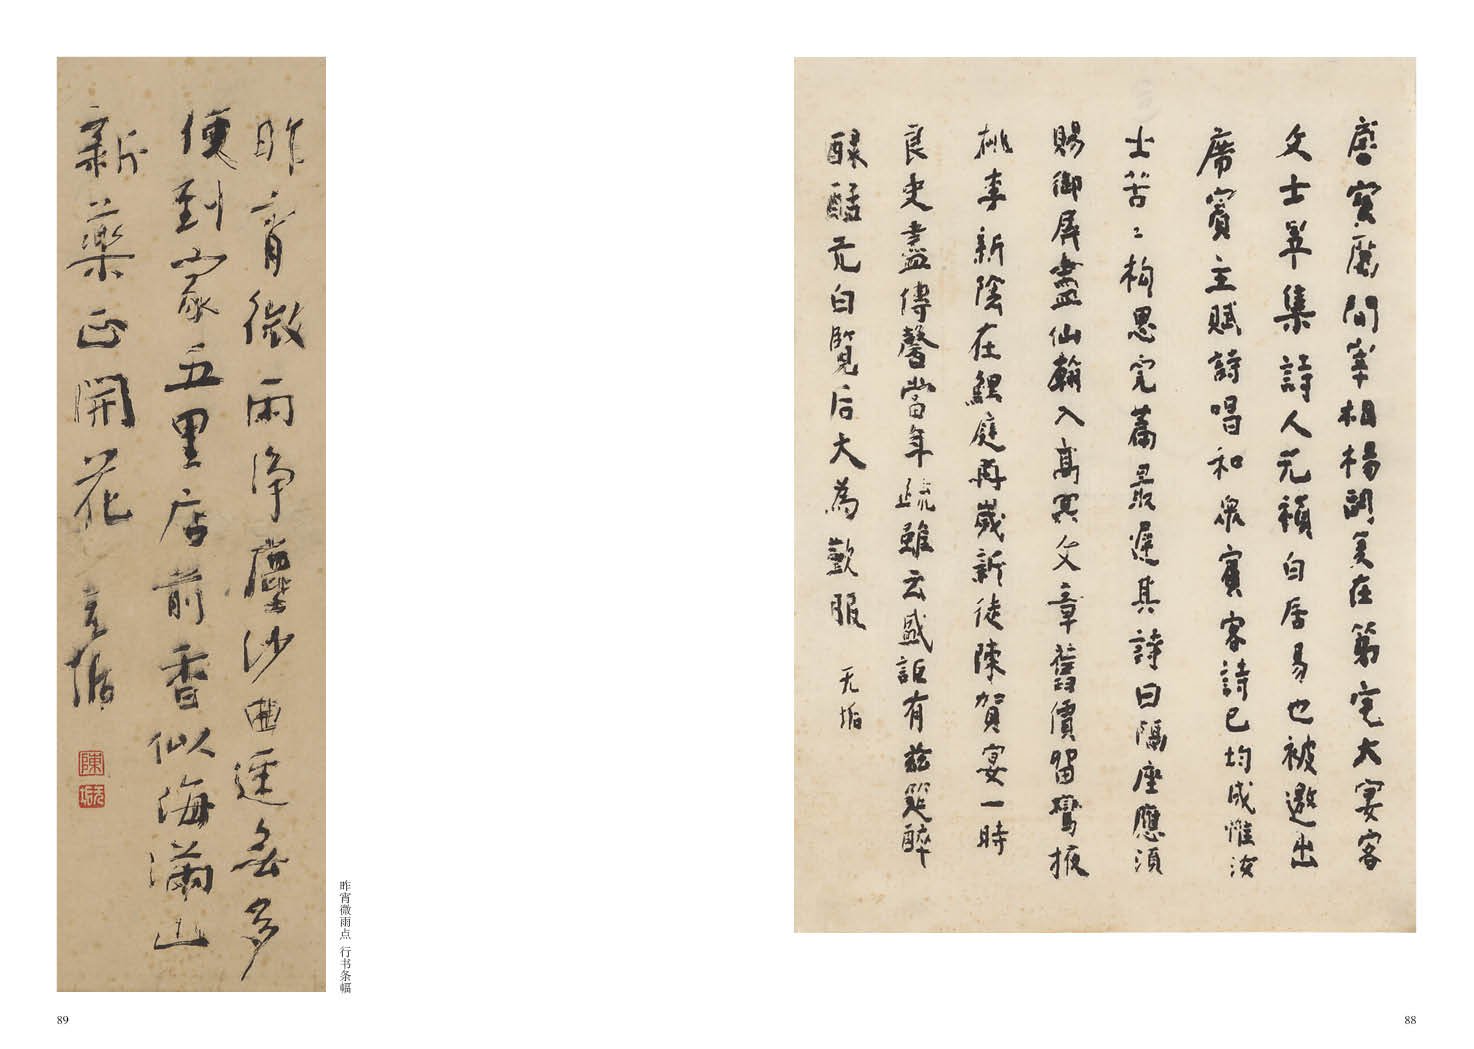 唐寳曆間宰相楊嗣复在第宅大宴客
文士畢集詩人元稹白居易也被邀出
席賓主賦詩唱和衆賓客詩已均成惟汝
士苦〻构思完篇最遲其詩曰隔座應須
賜御屏盡仙翰入高冥文章舊價留鸞掖
桃李新陰在鯉庭再歲新徒陳賀宴一時
良史盡傳馨當年疏雖云盛詎有兹筵醉
醁醽元白覽后大為歎服 无垢
88
昨宵微雨净塵沙曲逕無多
便到家五里店前香似海滿山
新藥正開花 无垢
陳
昨宵微雨点 行书条幅
89